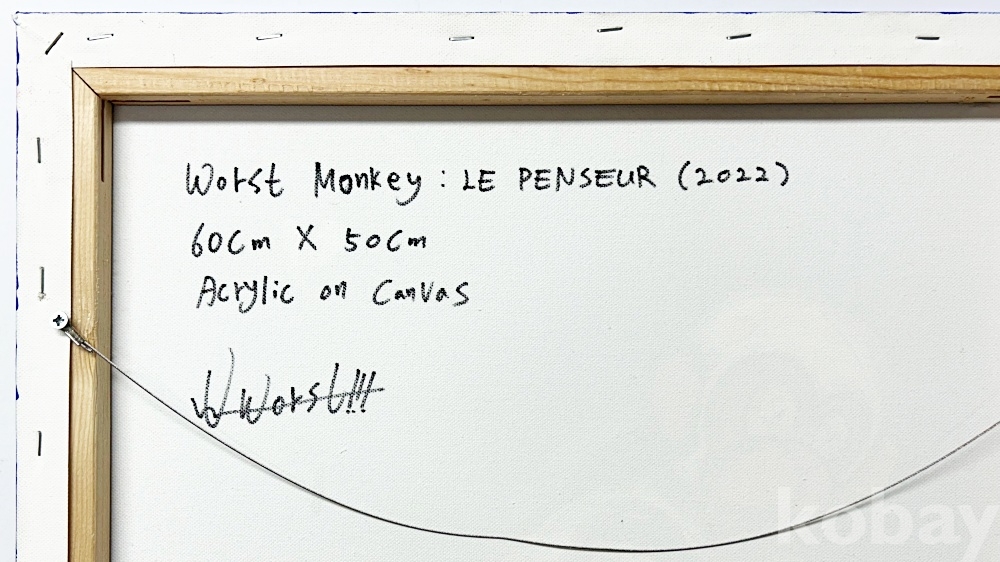 Worst Monkey : LE PENSEUR (2022)
60cm X 50cm
Acrylic on Canvas
Worst!!!
kobay